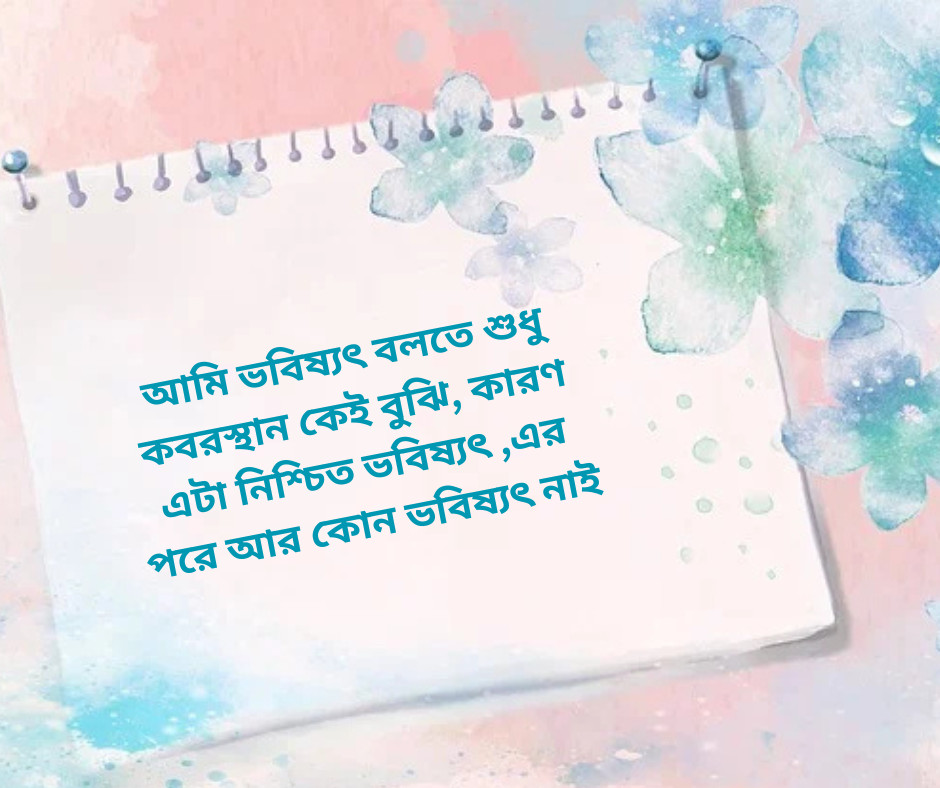 আমি ভবিষ্যৎ বলতে শুধু
কবরস্থান কেই বুঝি, কারণ
এটা নিশ্চিত ভবিষ্যৎ ,এর
পরে আর কোন ভবিষ্যৎ নাই